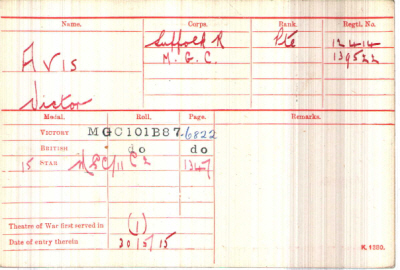 Name. Corps. Rank. Regtl. No.
Avis Suffolk R Pte 12414
M.G.C. 139522
Victor
Medal. Roll. Page. Remarks.
VICTORY MGC101B87 6822
BRITISH do do
15 STAR MGC/11 C2 1347
Theatre of War first served in (1)
Date of entry therein 30/5/15
K. 1380.